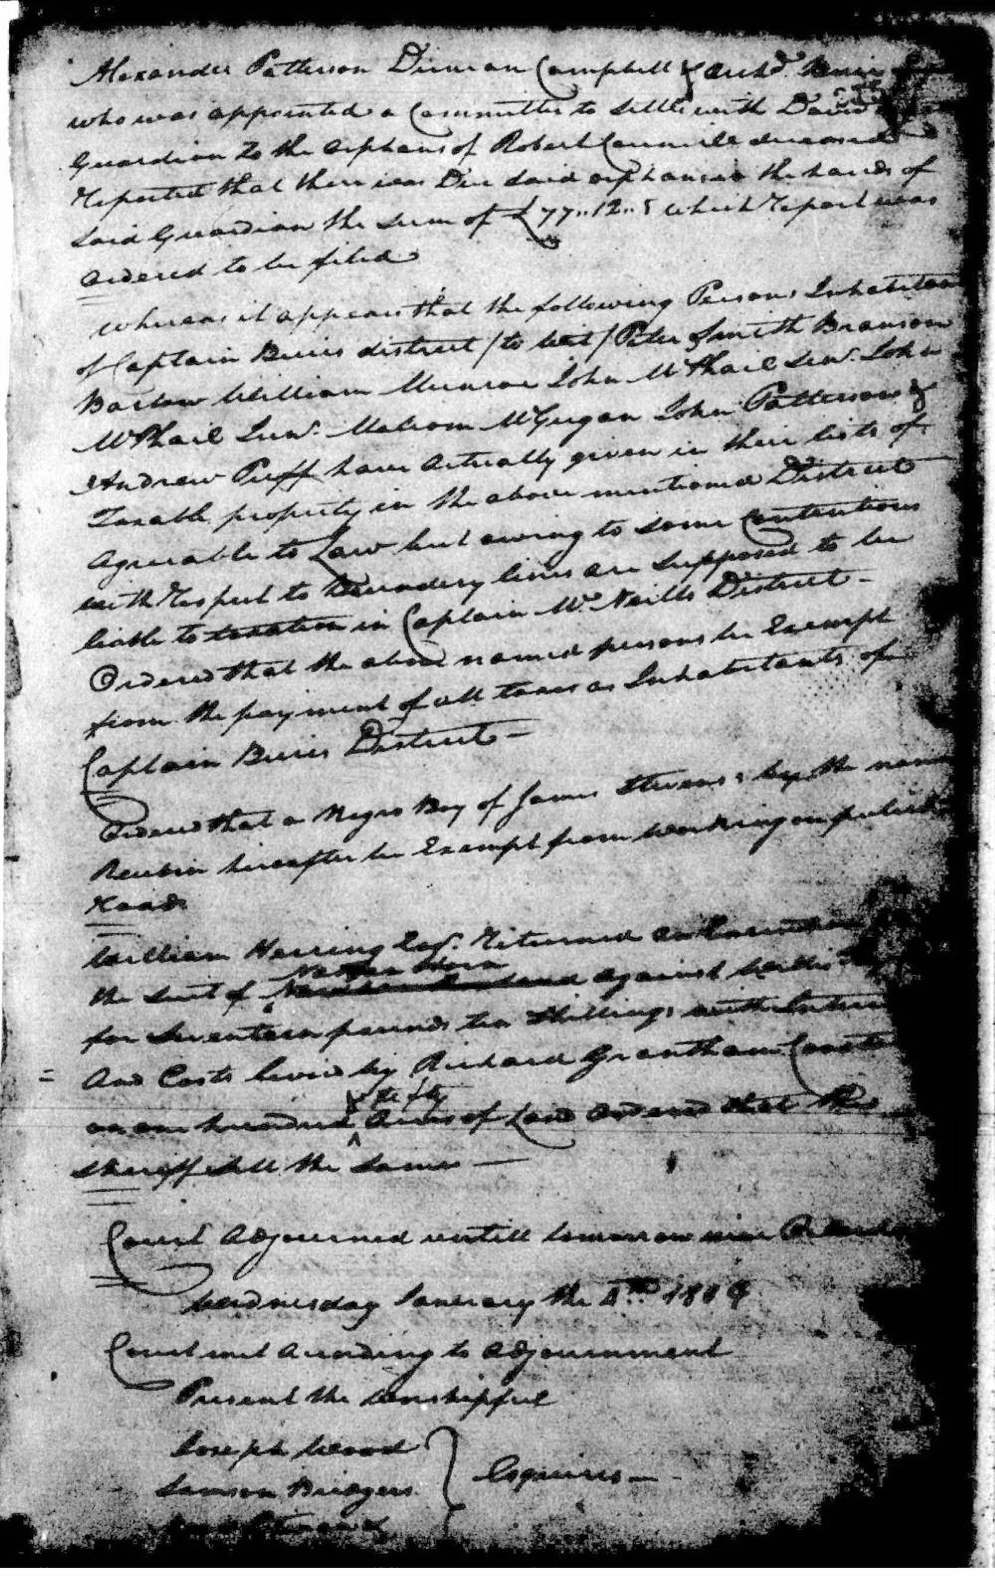 Alexander Patterson Duncan Campbell & Archd.
who was appointed a Committee to Settle with David
Guardian to the Orphans of Robert Council deceased
Reported that there was Due said orphans in the hands of
said Guardian the sum of £77..12..5 which Report was
ordered to be filed
whereas it appears that the following Persons Inhabitants
of Captain Buies district /to wit/ Peter Smith Branson
Barlow William Munroe John McPhail Senr. John
McPhail Junr. Malcom McGugan John Patterson &
Andrew Puff have actually given in their lists of
Taxable property in the above mentioned District
agreeable to Law but owing to some Contentions
with Respect to Boundery lines are Supposed to be
liable to taxation in Captain McNeills District -
Ordered that the above named persons be Exempt
from the payment of all taxes as Inhabitants of
Captain Buies District -
Ordered that a Negro Boy of James Stevens's by the name
Reubin hereafter be Exempt from working on public
Roads
William Herring Esqr. Returned an Execution
the suit of Nathan Horn against Willis
for Seventeen pounds ten Shillings with Interest
And Costs levied by Richard Grantham Constable
on one hundred & fifty Acres of Land Ordered that the
Sheriff Sell the Same -
Court Adjourned untill tomorrow nine OClock
Wednesday January the 4th 1804
Court met According to Adjournment
Present the worshipful
Joseph Wood
Samson Bridgers
Esquires -